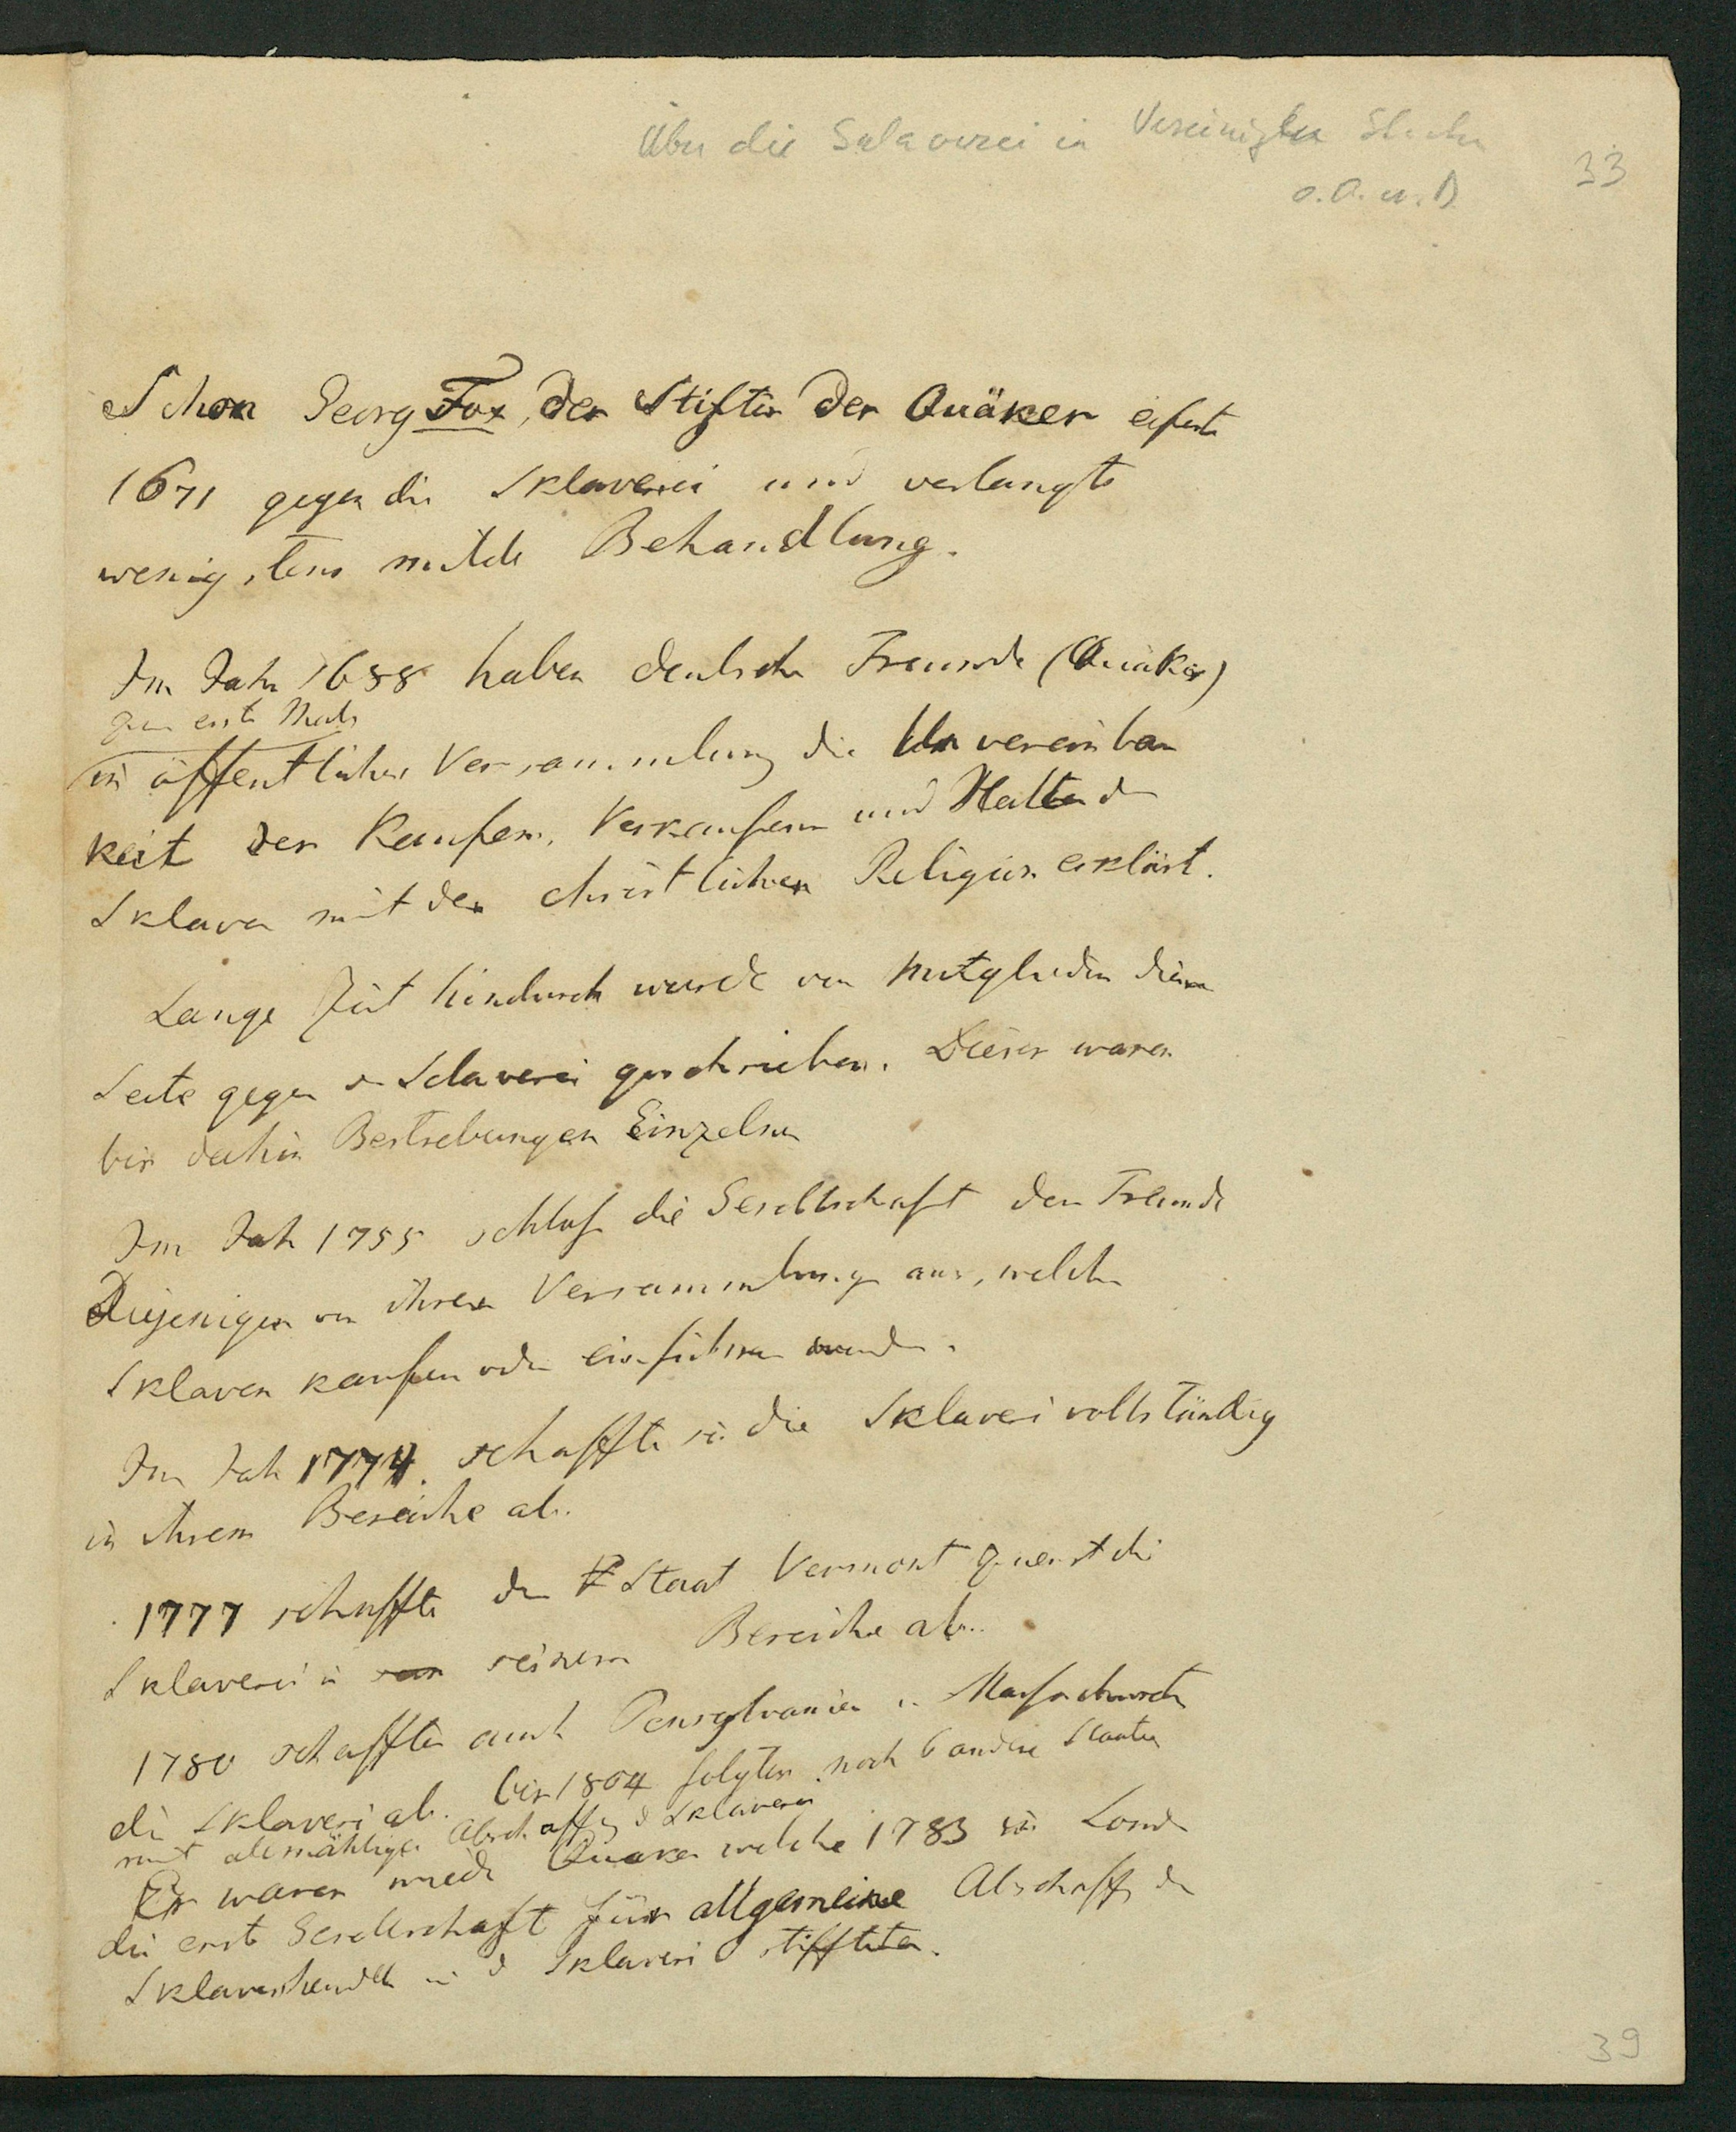 Über die Sclaverei in Vereinigten Staaten
o. O. u. D
33
Schon Georg Fox, der Stifter der Quäker eiferte
1671 gegen die Sklaverei und verlangte
wenigstens milde Behandlung.
Im Jahr 1688 haben deutsche Freunde (Quäker)
zum erste Mals
in öffentlicher Versammlung die Unvereinbar
keit des Kaufens, Verkaufens und Haltens d
Sklaven mit der christlichen Religion erklärt.
Lange Zeit hindurch wurde von Mitgliedern dieser
Secte gegen d Sclaverei geschrieben. Dieses waren
bis dahin Bestrebungen Einzelner
Im Jah 1755 schloß die Gesellschaft der Freunde
Diejenigen von ihren Versammlungen aus, welche
Sklaven kaufen oder einführen würden.
Im Jah 1774. schaffte sie die Sklaverei vollständig
in ihrem Bereiche ab.
1777 schaffte der Staat Vermont zuerst die
Sklaverei in seinem Bereiche ab.
1780 schafften auch Pensylvanien u. Massachusets
die Sklaverei ab. bis 1804 folgten noch 6 andere Staaten
mit allmähliger Abschaffg d Sklaverei
Es waren wieder Quaker welche 1783 in Lond
die erste Gesellschaft für allgemeine Abschaffg des
Sklavenhandels u d Sklaverei stiffteten.
39